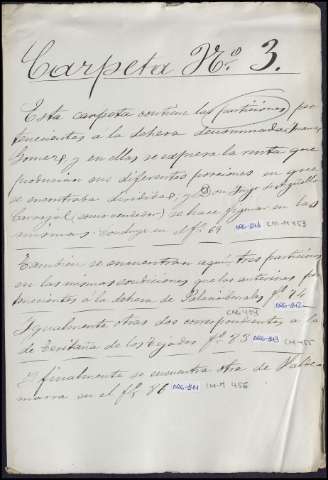 Carpeta Nº 3.
Esta carpeta contiene las particiones per
tenecientes a la dehesa denominada Juana
Gomez, y en ellas se expresa la renta que
producian sus diferentes porciones en que
se encontraba dividida; y Don Jorge
Carvajal, se hace figurar en las
mismas: concluye en el fº 69 CM-M 453
Tambien se encuentran aquí tres particiones
en las mismas condiciones que las anteriores per
tenecientes a la dehesa de fº 76
Igualmente otras dos correspondientes a la
de de los fº 85 CM-M 455
Y finalmente se encuentra otra de
en el fº 86 CM-M 456